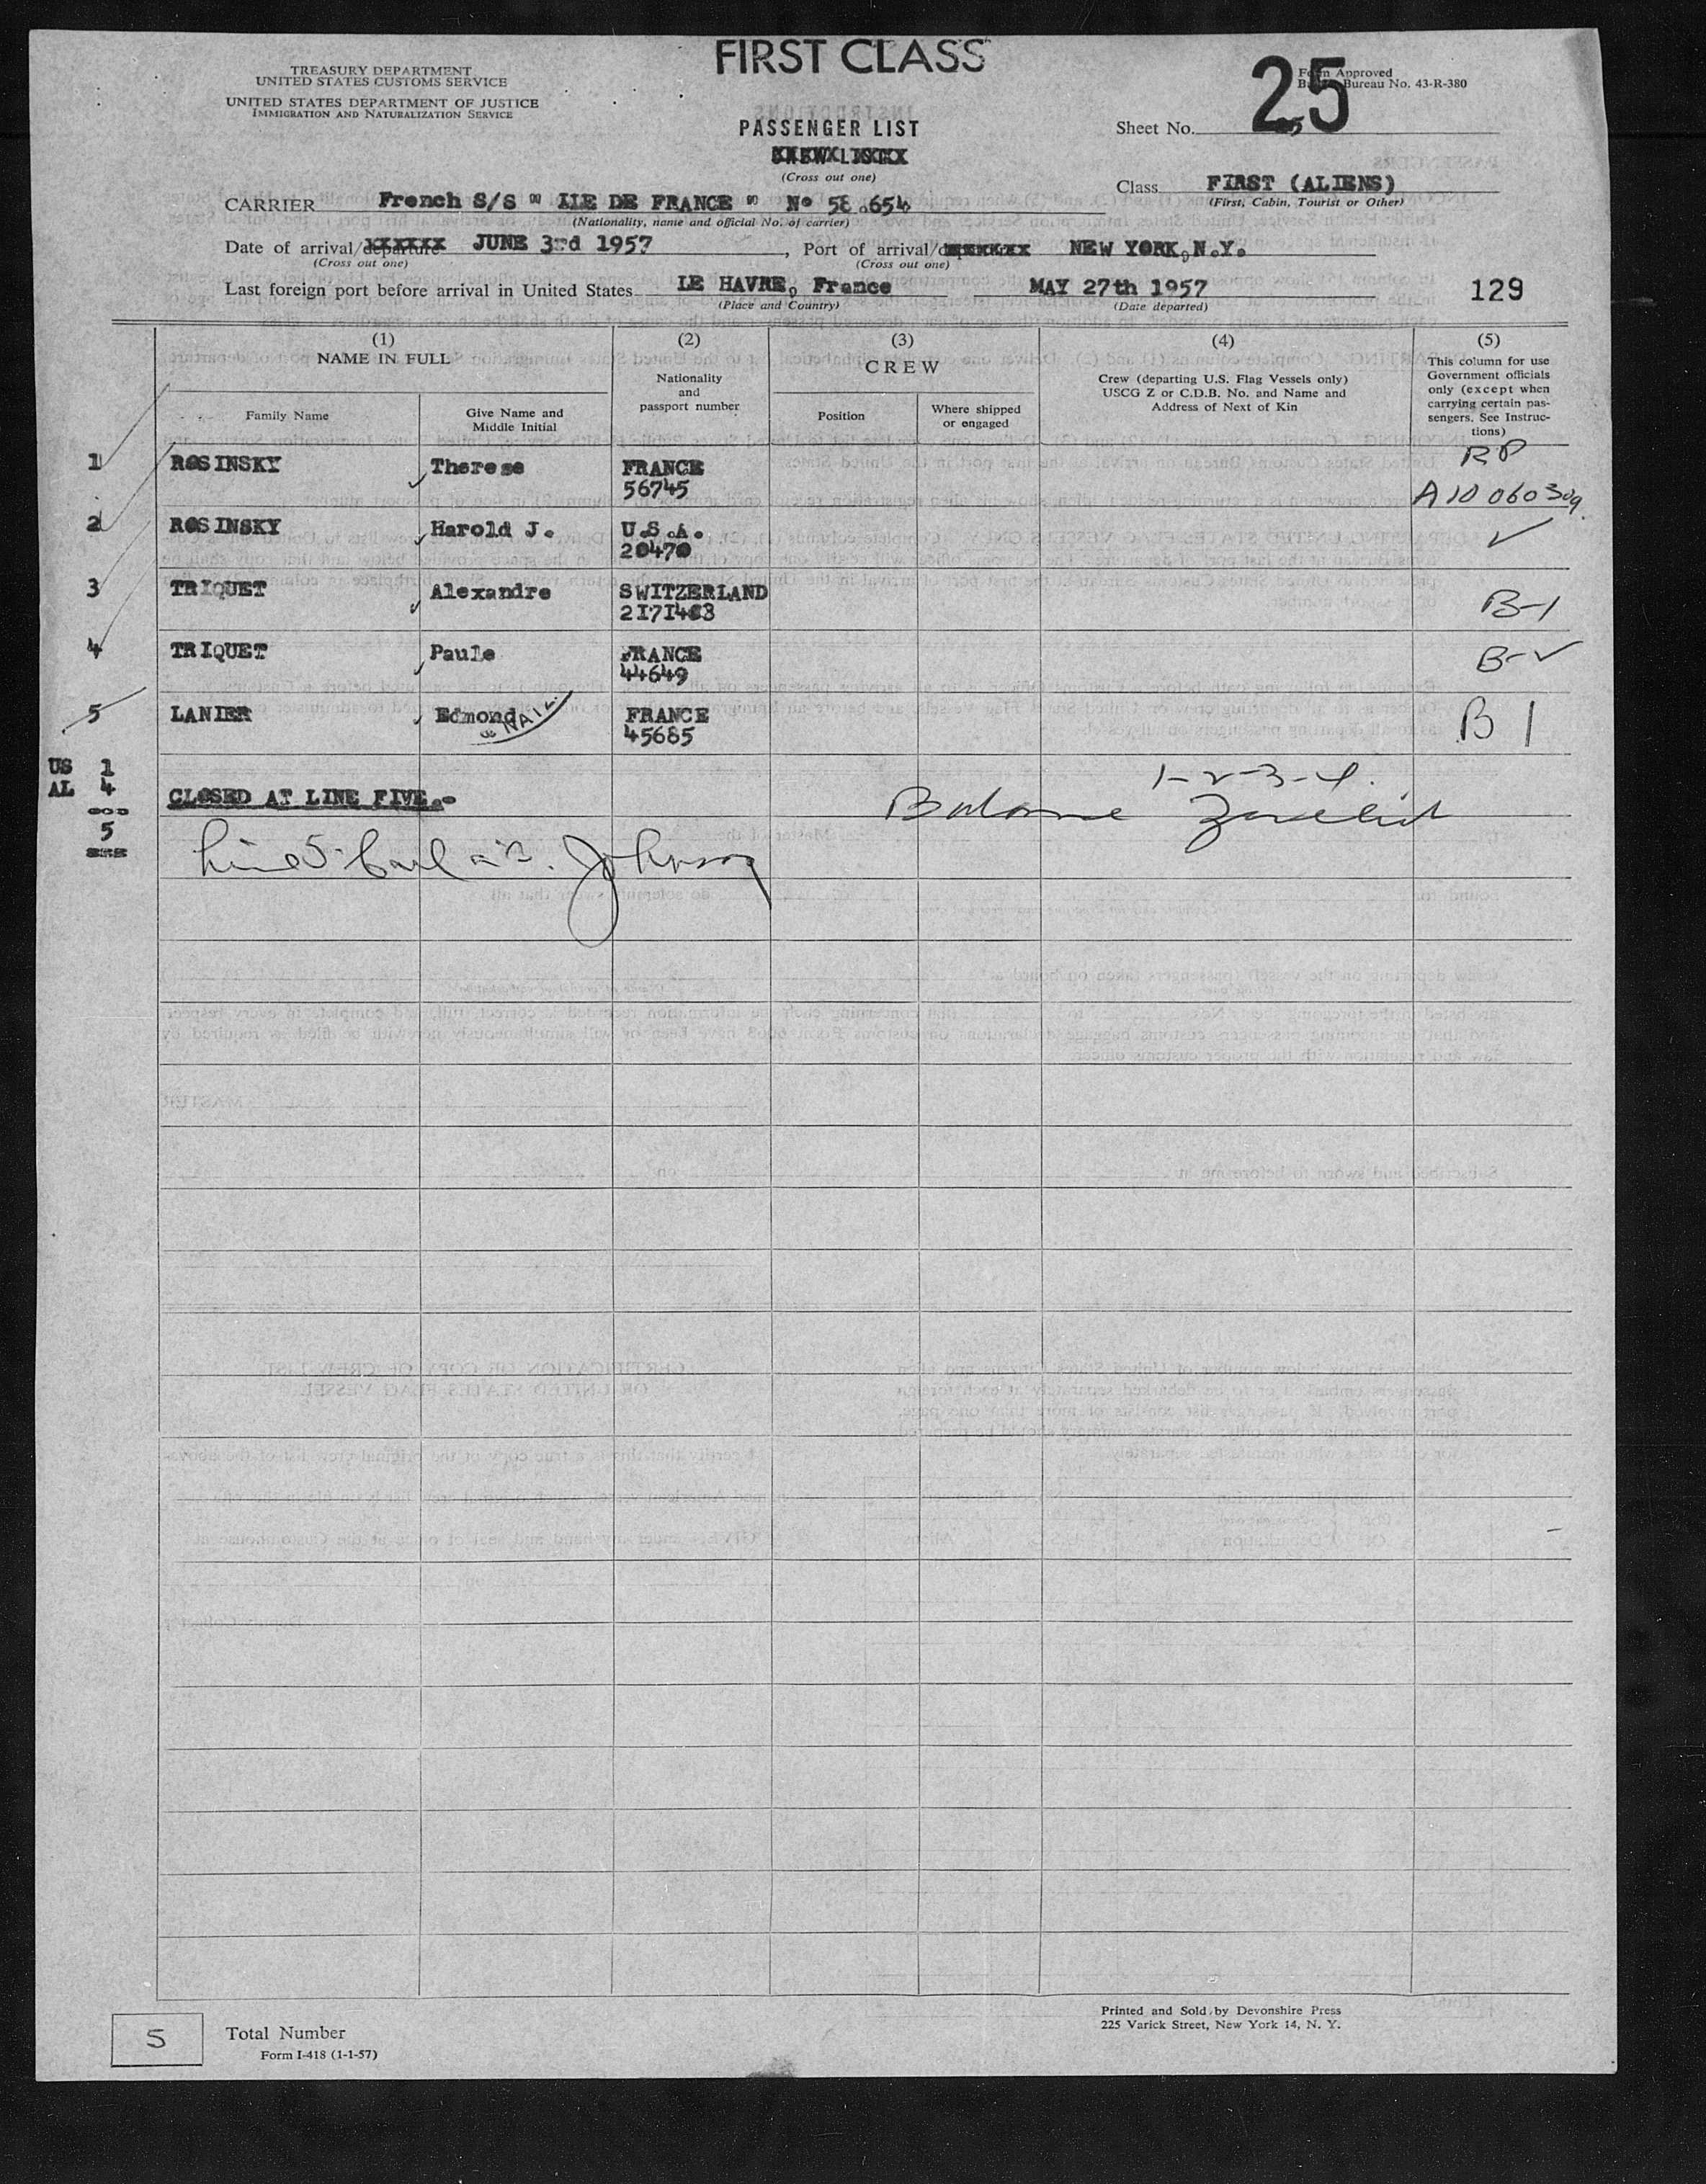 FIRST CLASS
TREASURY DEPARTMENT
UNITED STATES CUSTOMS SERVICE
UNITED STATES DEPARTMENT OF JUSTICE
IMMIGRATION AND NATURALIZATION SERVICE
PASSENGER LIST
(Cross out one)
25
Form Approved
Bureau No. 43-R-380
Sheet No.
Class FIRST (ALIENS)
(First, Cabin, Tourist or Other)
CARRIER French S/S " ILE DE FRANCE " N° 58.654
(Nationality, name and official No. of carrier)
Date of arrival/departure JUNE 3rd 1957, Port of arrival/ NEW YORK, N.Y.
(Cross out one) (Cross out one)
Last foreign port before arrival in United States LE HAVRE, France MAY 27th 1957
(Place and Country) (Date departed)
129
(1) (2) (3) (4) (5)
NAME IN FULL
Family Name
Give Name and
Middle Initial
Nationality
and
passport number
CREW
Position
Where shipped
or engaged
Crew (departing U.S. Flag Vessels only)
USCG Z or C.D.B. No. and Name and
Address of Next of Kin
This column for use
Government officials
only (except when
carrying certain pas-
sengers. See Instruc-
tions)
1 ROSINSKY Therese FRANCE RP
56745 A10 060 309
2 ROSINSKY Harold J. U.S.A. ✓
20470
3 TRIQUET Alexandre SWITZERLAND B-1
4 TRIQUET Paule FRANCE B-
44649
5 LANIER Edmond FRANCE B 1
45685
US 1
AL 4
5
CLOSED AT LINE FIVE.-
1-2-3-4.
Line 5 Johnson
5
Total Number
Form I-418 (1-1-57)
Printed and Sold by Devonshire Press
225 Varick Street, New York 14, N. Y.